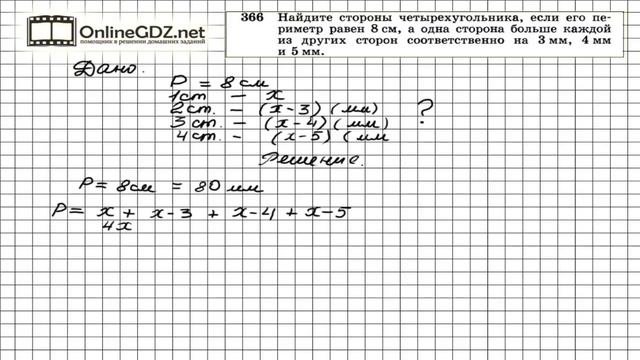 OnlineGDZ.net
помощник в решении домашних заданий
366 Найдите стороны четырехугольника, если его пе-
риметр равен 8 см, а одна сторона больше каждой
из других сторон соответственно на 3 мм, 4 мм
и 5 мм.
Дано.
P = 8 см
1ст – x
2 ст. – (x-3) (мм)
3 ст. – (x-4) (мм)
4 ст. – (x-5) (мм
?
Решение.
P = 8см = 80 мм
P = x + x-3 + x-4 + x-5
4x